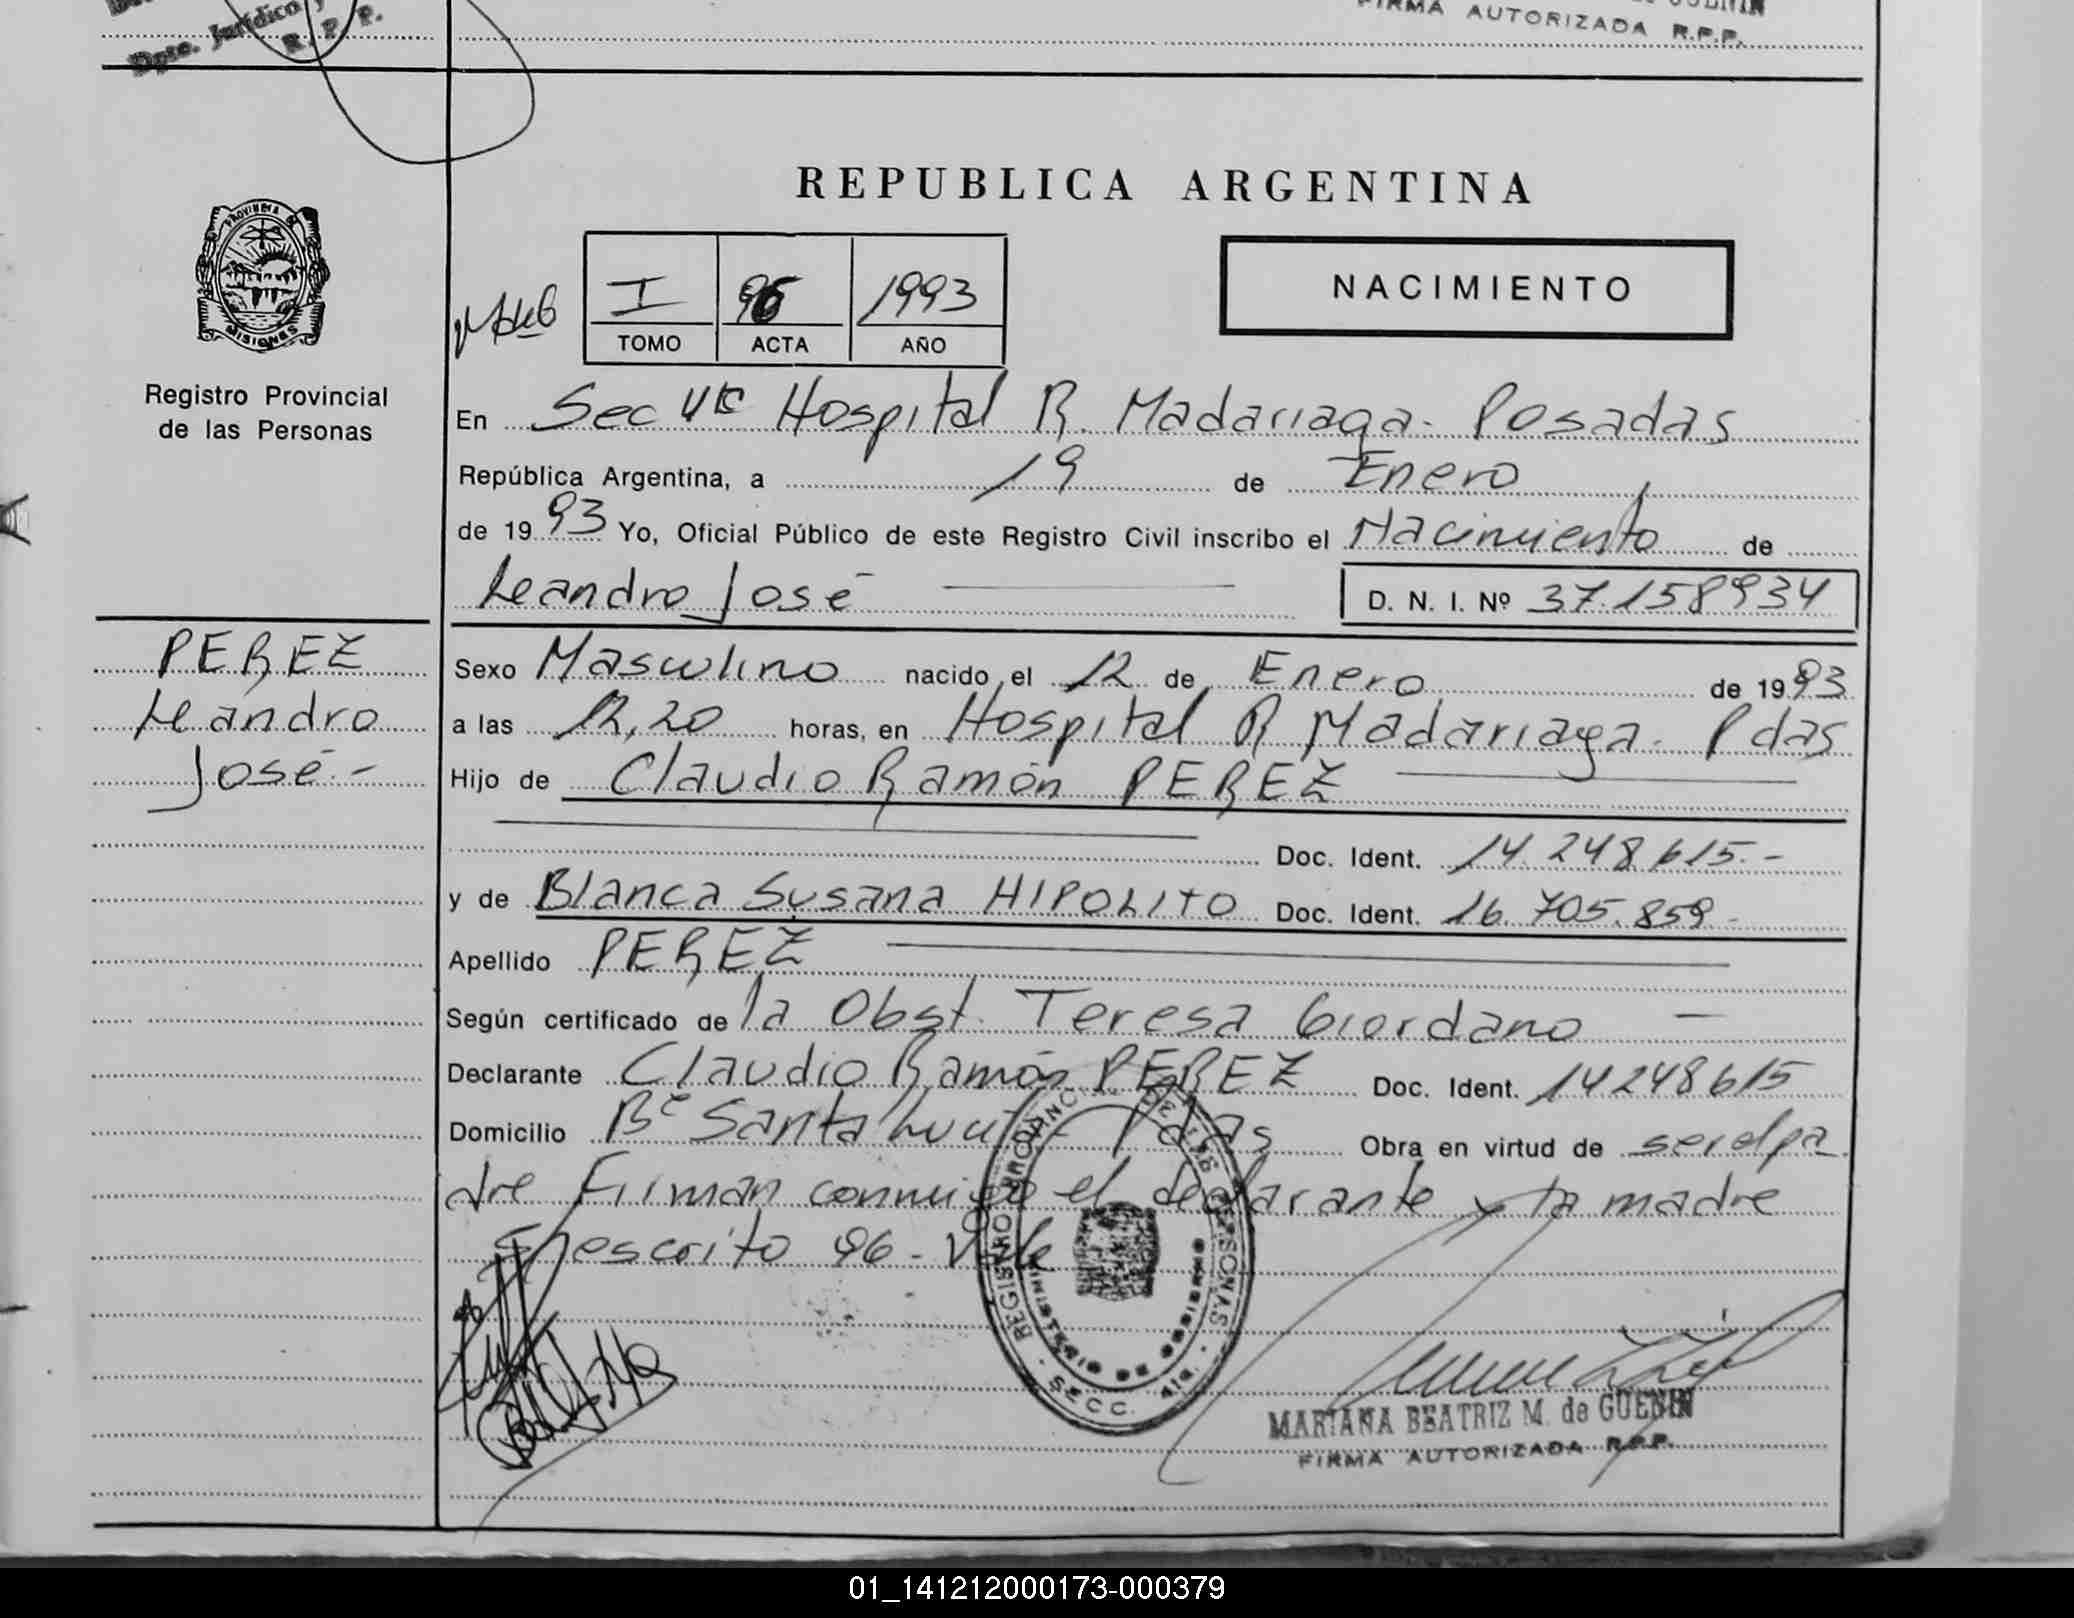 Dpto. Jurídico y
R. P. P.
FIRMA AUTORIZADA R.P.P.
REPUBLICA ARGENTINA
PROVINCIA DE MISIONES
Registro Provincial
de las Personas
I 96 1993
TOMO ACTA AÑO
NACIMIENTO
En Sec Hospital R. Madariaga. Posadas
República Argentina, a 19 de Enero
de 1993 Yo, Oficial Público de este Registro Civil inscribo el Nacimiento de
Leandro José D. N. I. Nº 37.158934
PEREZ
Leandro
José.-
Sexo Masculino nacido el 12 de Enero de 1993
a las 12,20 horas, en Hospital R Madariaga. Pdas
Hijo de Claudio Ramón PEREZ
Doc. Ident. 14.248.615.-
y de Blanca Susana HIPOLITO Doc. Ident. 16.705.859-
Apellido PEREZ
Según certificado de la Obst. Teresa Giordano
Declarante Claudio Ramón PEREZ Doc. Ident. 14248615
Domicilio Bº Santa Lucia - Pdas Obra en virtud de ser el pa
dre Firman conmigo el declarante y la madre
escrito 96 - Vale
REGISTRO PROVINCIAL DE LAS PERSONAS
MINISTERIO DE GOBIERNO
SECC.
MARIANA BEATRIZ M. de GUENIN
FIRMA AUTORIZADA R.P.P.
01_141212000173-000379